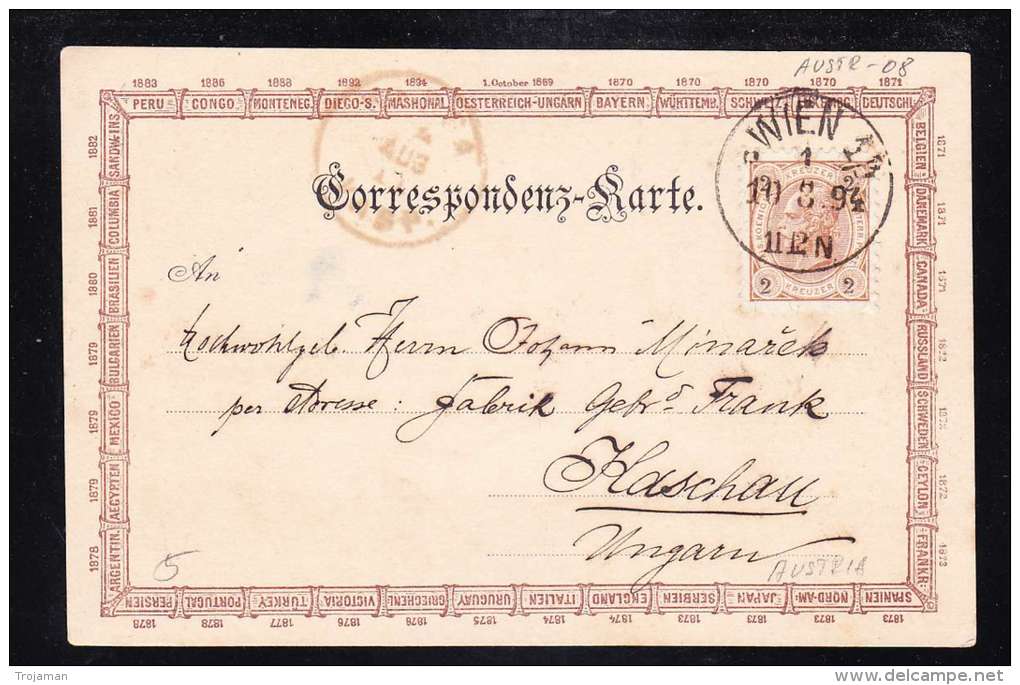 AUSTR-08
1883 1886 1888 1892 1894 1. October 1869 1870 1870 1870 1870 1871
PERU CONGO MONTENEG. DIEGO-S. MASHONAL. OESTERREICH-UNGARN BAYERN. WÜRTTEMB. SCHWEIZ DEUTSCHL.
WIEN
1
10 8 94
11 12 N
AUG
Correspondenz-Karte.
KREUZER
2 2
2 KREUZER 2
An
Hochwohlgeb. Herrn Johann Minařik
per Adresse: Fabrik Gebrd Frank
Kaschau
Ungarn
AUSTRIA
5
1882 SANDW.-INS.
1881 COLUMBIA
1880 BRASILIEN
1879 BULGARIEN
1879 MEXICO
1879 AEGYPTEN
1878 ARGENTIN.
1871 BELGIEN
1871 DÄNEMARK
1871 CANADA
RUSSLAND
SCHWEDEN
1872 CEYLON
1873 FRANKR.
PERSIEN PORTUGAL TÜRKEY VICTORIA GRIECHENL. URUGUAY ITALIEN ENGLAND SERBIEN JAPAN NORD-AM. SPANIEN
1878 1878 1877 1876 1876 1875 1874 1874 1873 1873 1873 1873
Trojaman
delcampe.net